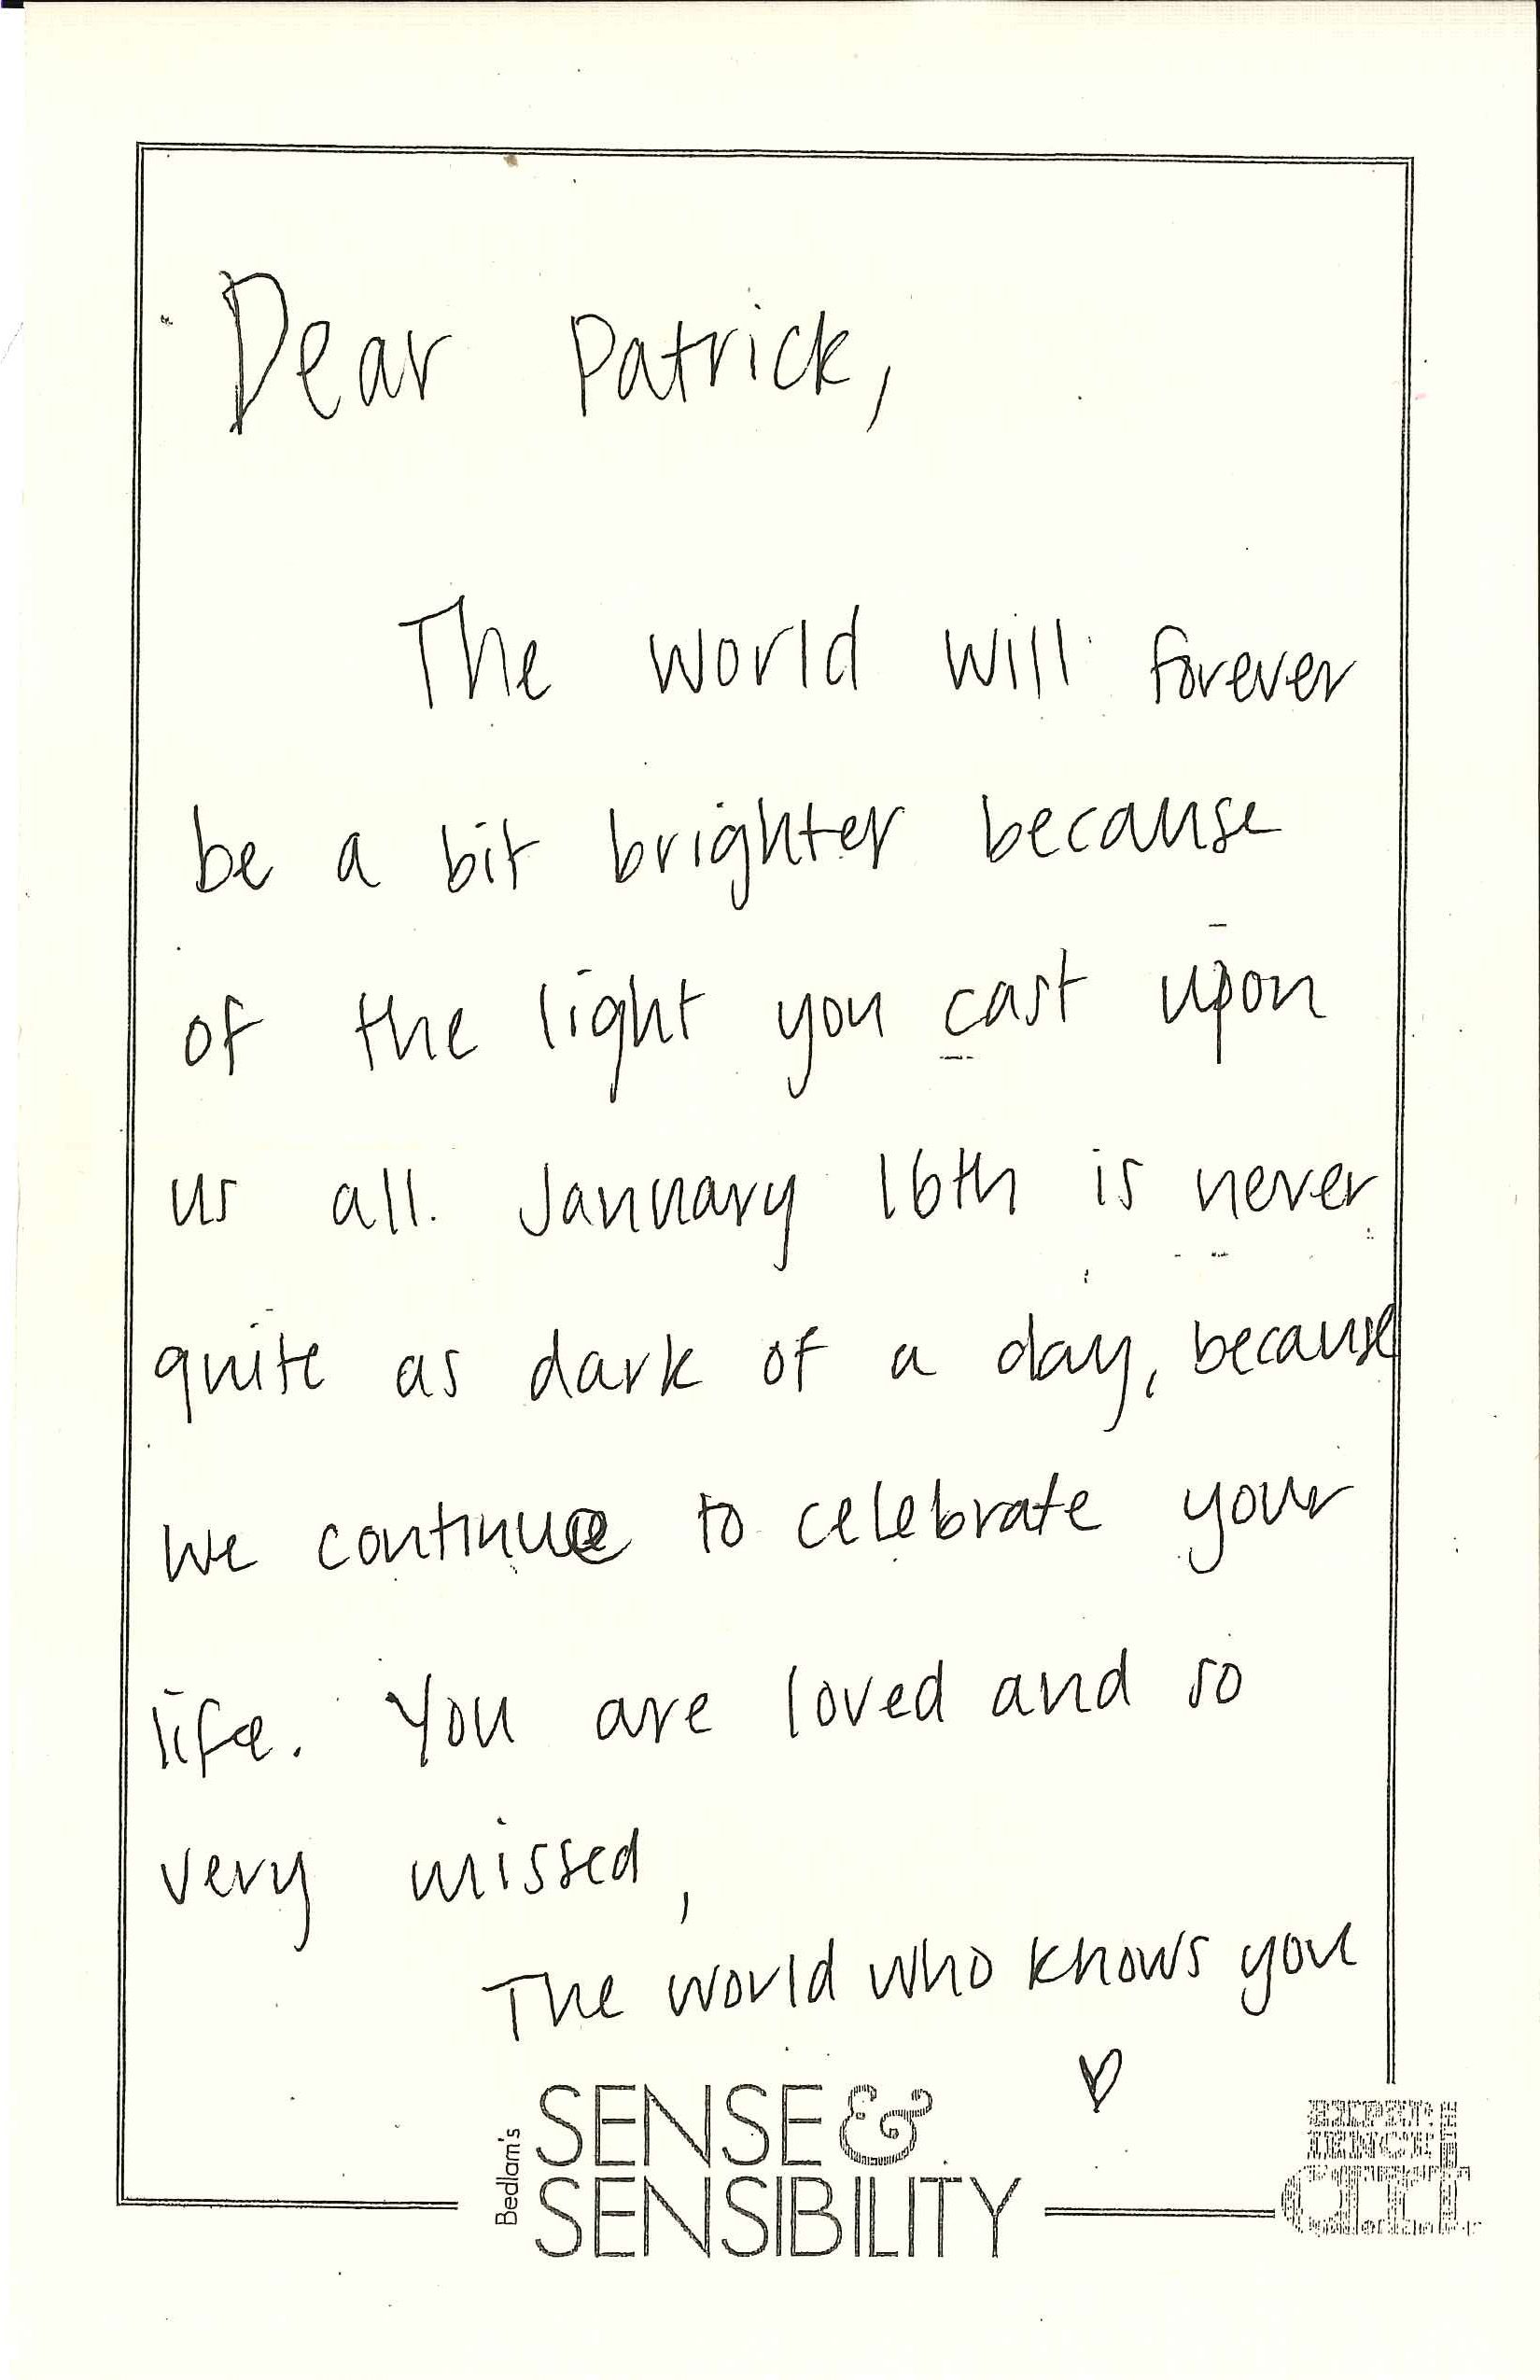 Dear Patrick,
The world will forever
be a bit brighter because
of the light you cast upon
us all. January 16th is never
quite as dark of a day, because
we continue to celebrate your
life. You are loved and so
very missed,
The world who knows you
Bedlam's
SENSE &
SENSIBILITY
EXPER
IENCE THE